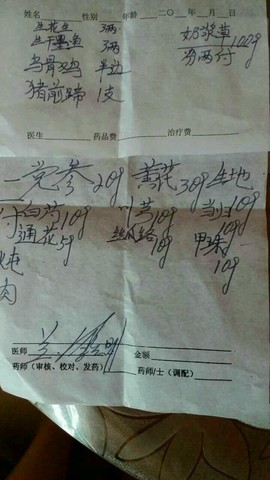 姓名 性别 年龄 二〇 年 月 日
生花生 3两
生干墨鱼 3两
乌骨鸡 半边
猪前蹄 1支
奶浆草 100g
分两付
医生 药品费 治疗费
党参20g 黄花30g 生地10g
白芍10g 川芎10g 当归10g
通花5g 丝瓜络10g 甲珠10g
炖肉
医师 金额
药师(审核、校对、发药) 药师/士(调配)